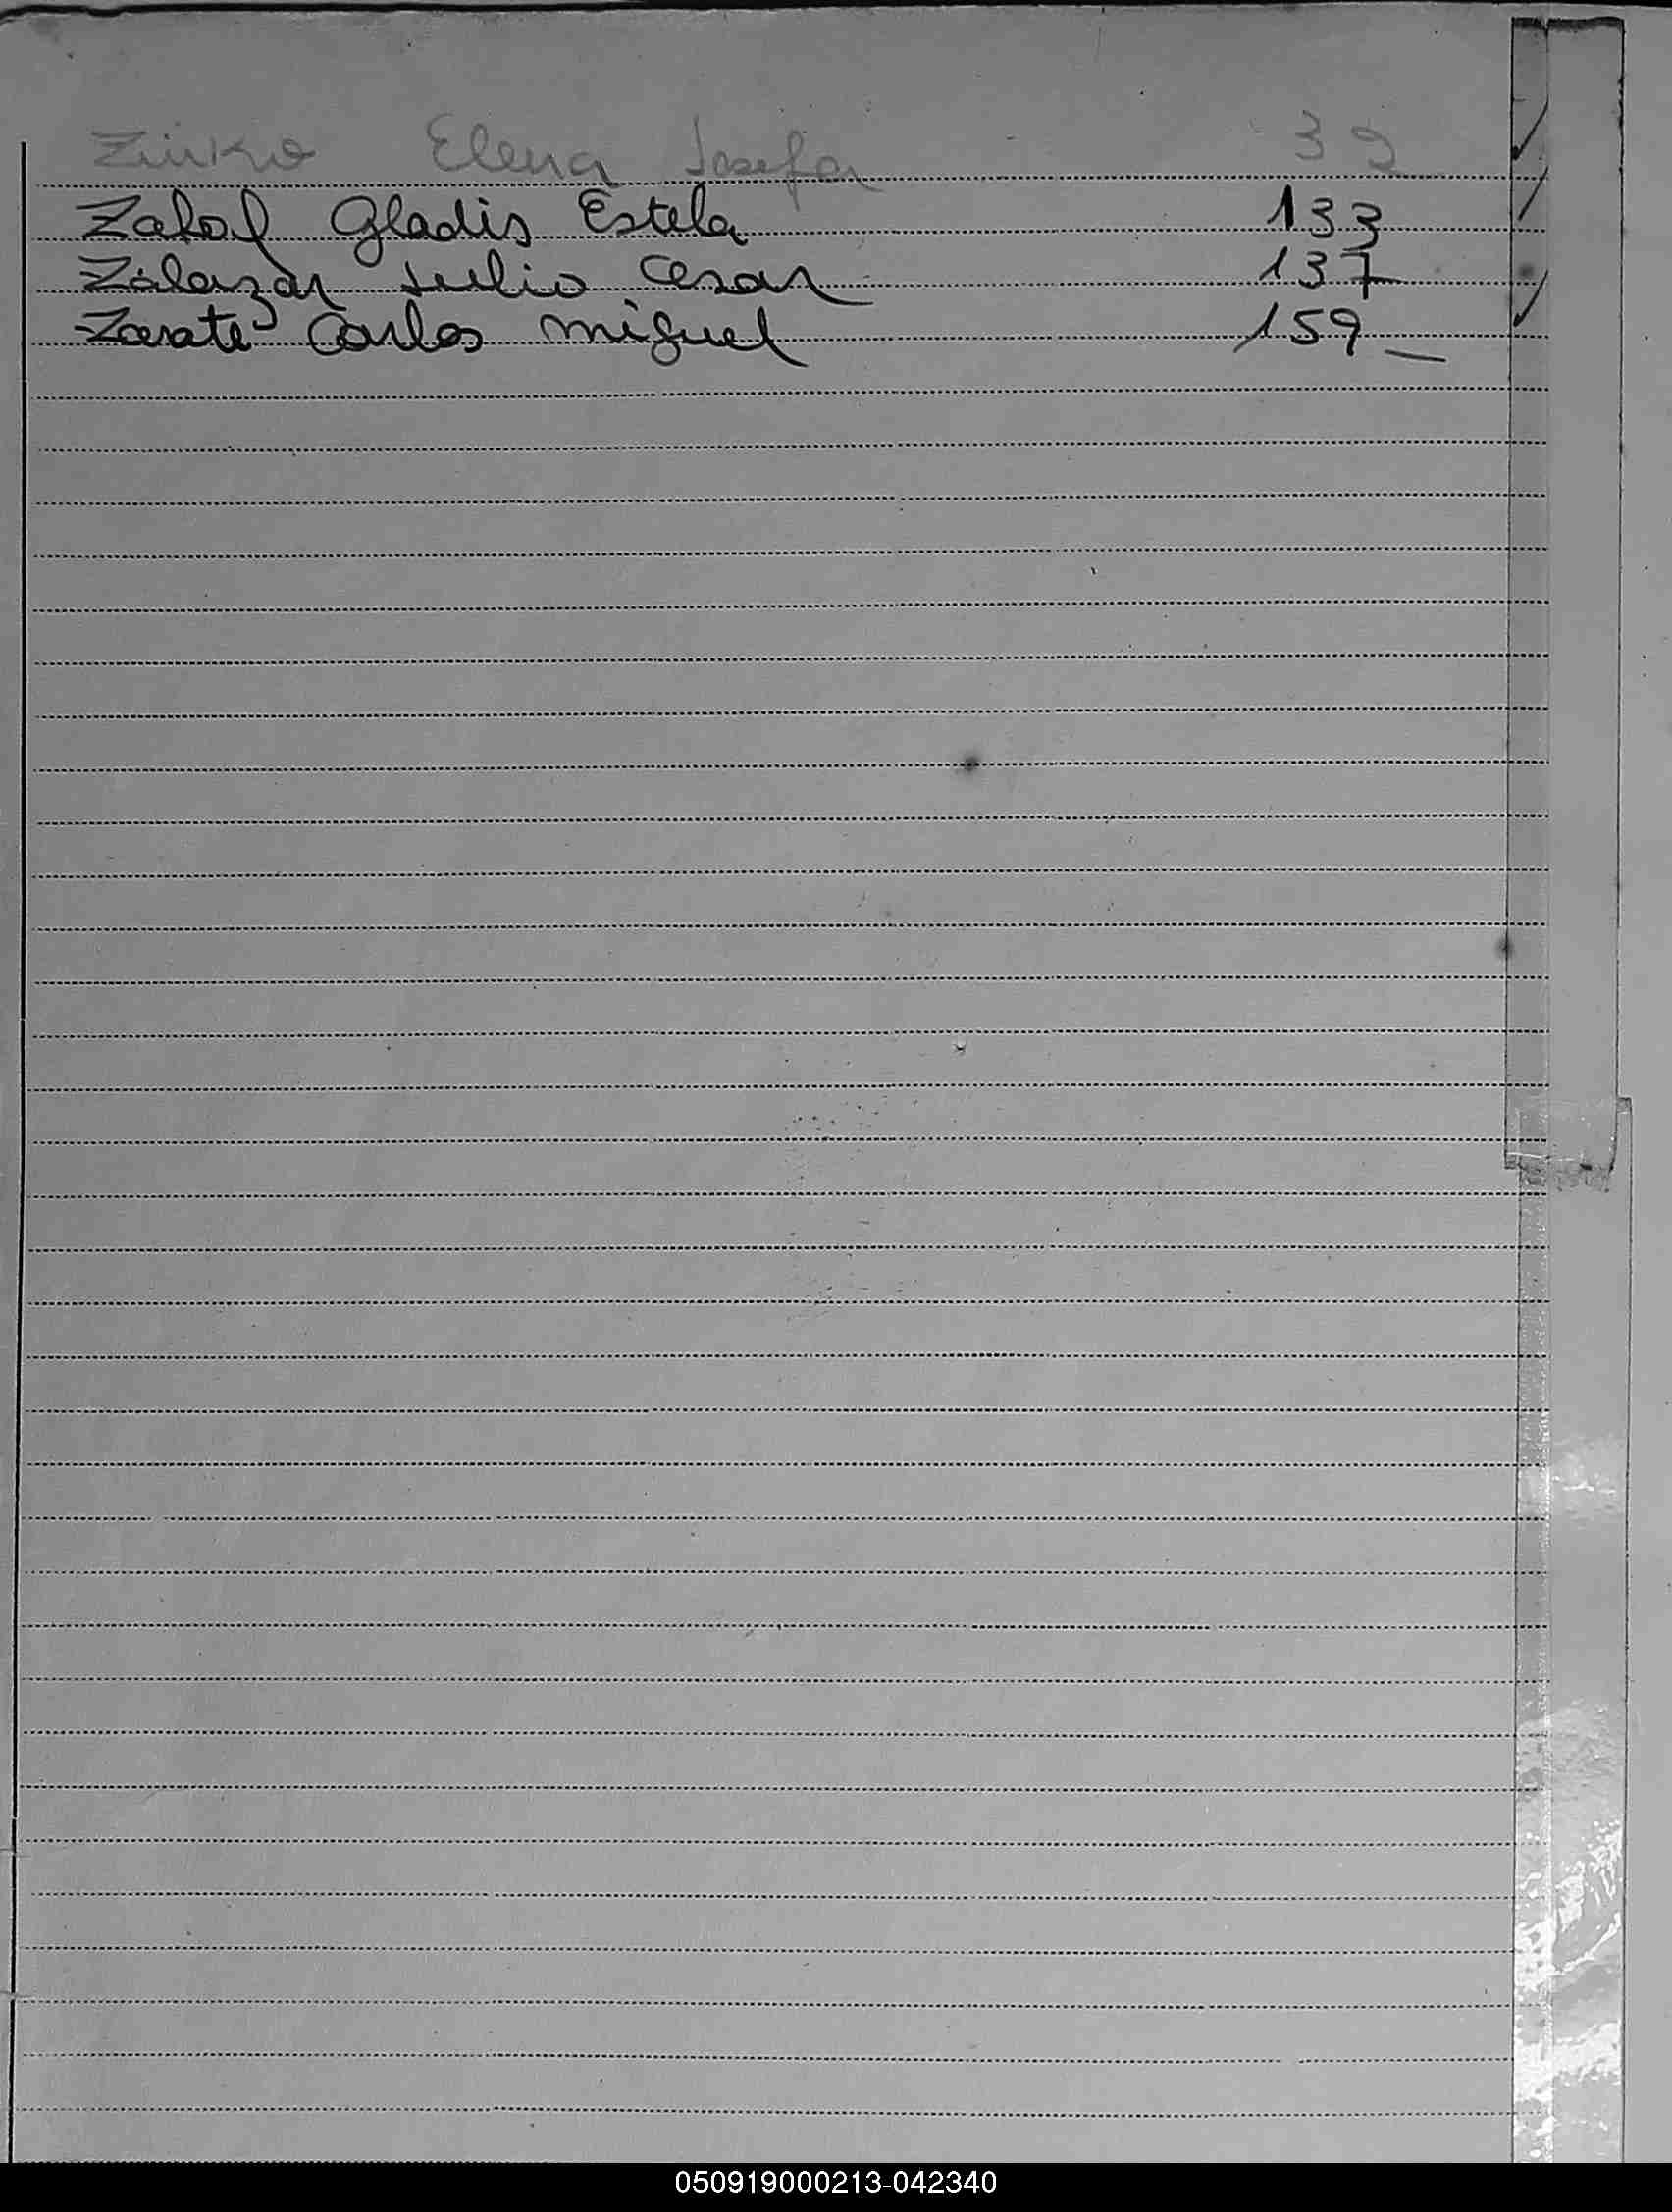 Zinko Elena Josefa 39
Gladis Estela 133
Zalazar Julio Cesar 137
Zarate Carlos Miguel 159
050919000213-042340